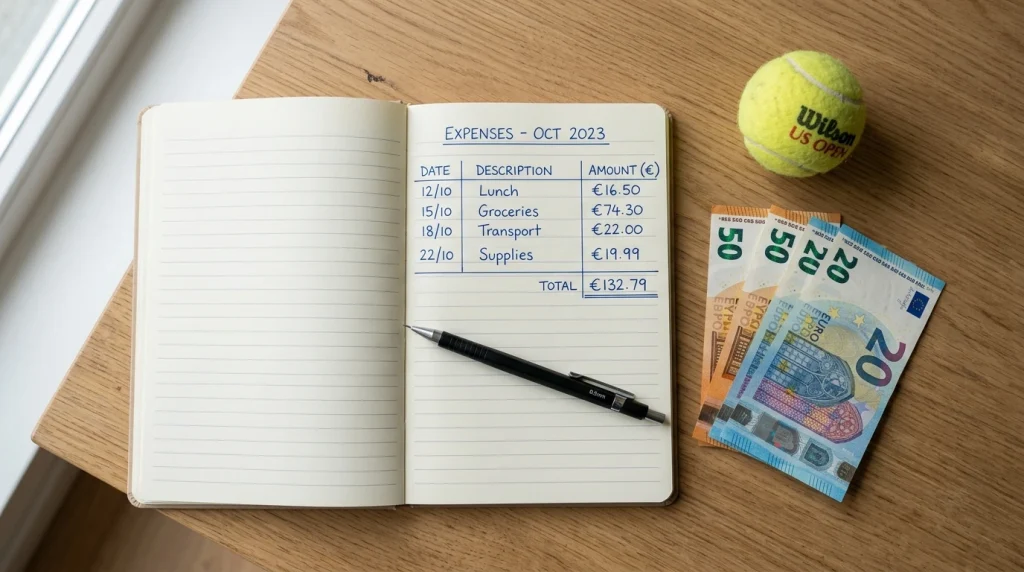 EXPENSES - OCT 2023
DATE DESCRIPTION AMOUNT (€)
12/10 Lunch €16.50
15/10 Groceries €74.30
18/10 Transport €22.00
22/10 Supplies €19.99
TOTAL €132.79
0.5mm
Wilson
US OPEN
50
50
20
20
20
EURO